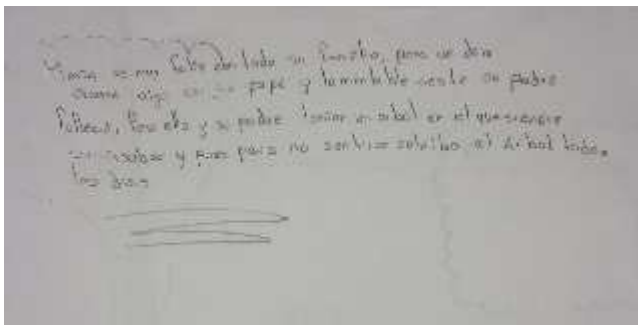 María es muy feliz con toda su familia, pero un día
ocurre algo con su papá y lamentablemente su padre
fallece, Pero ella y su padre tenían un arbol en el que siempre
y Pues para no sentirse sola iba al Arbol todos
los dias